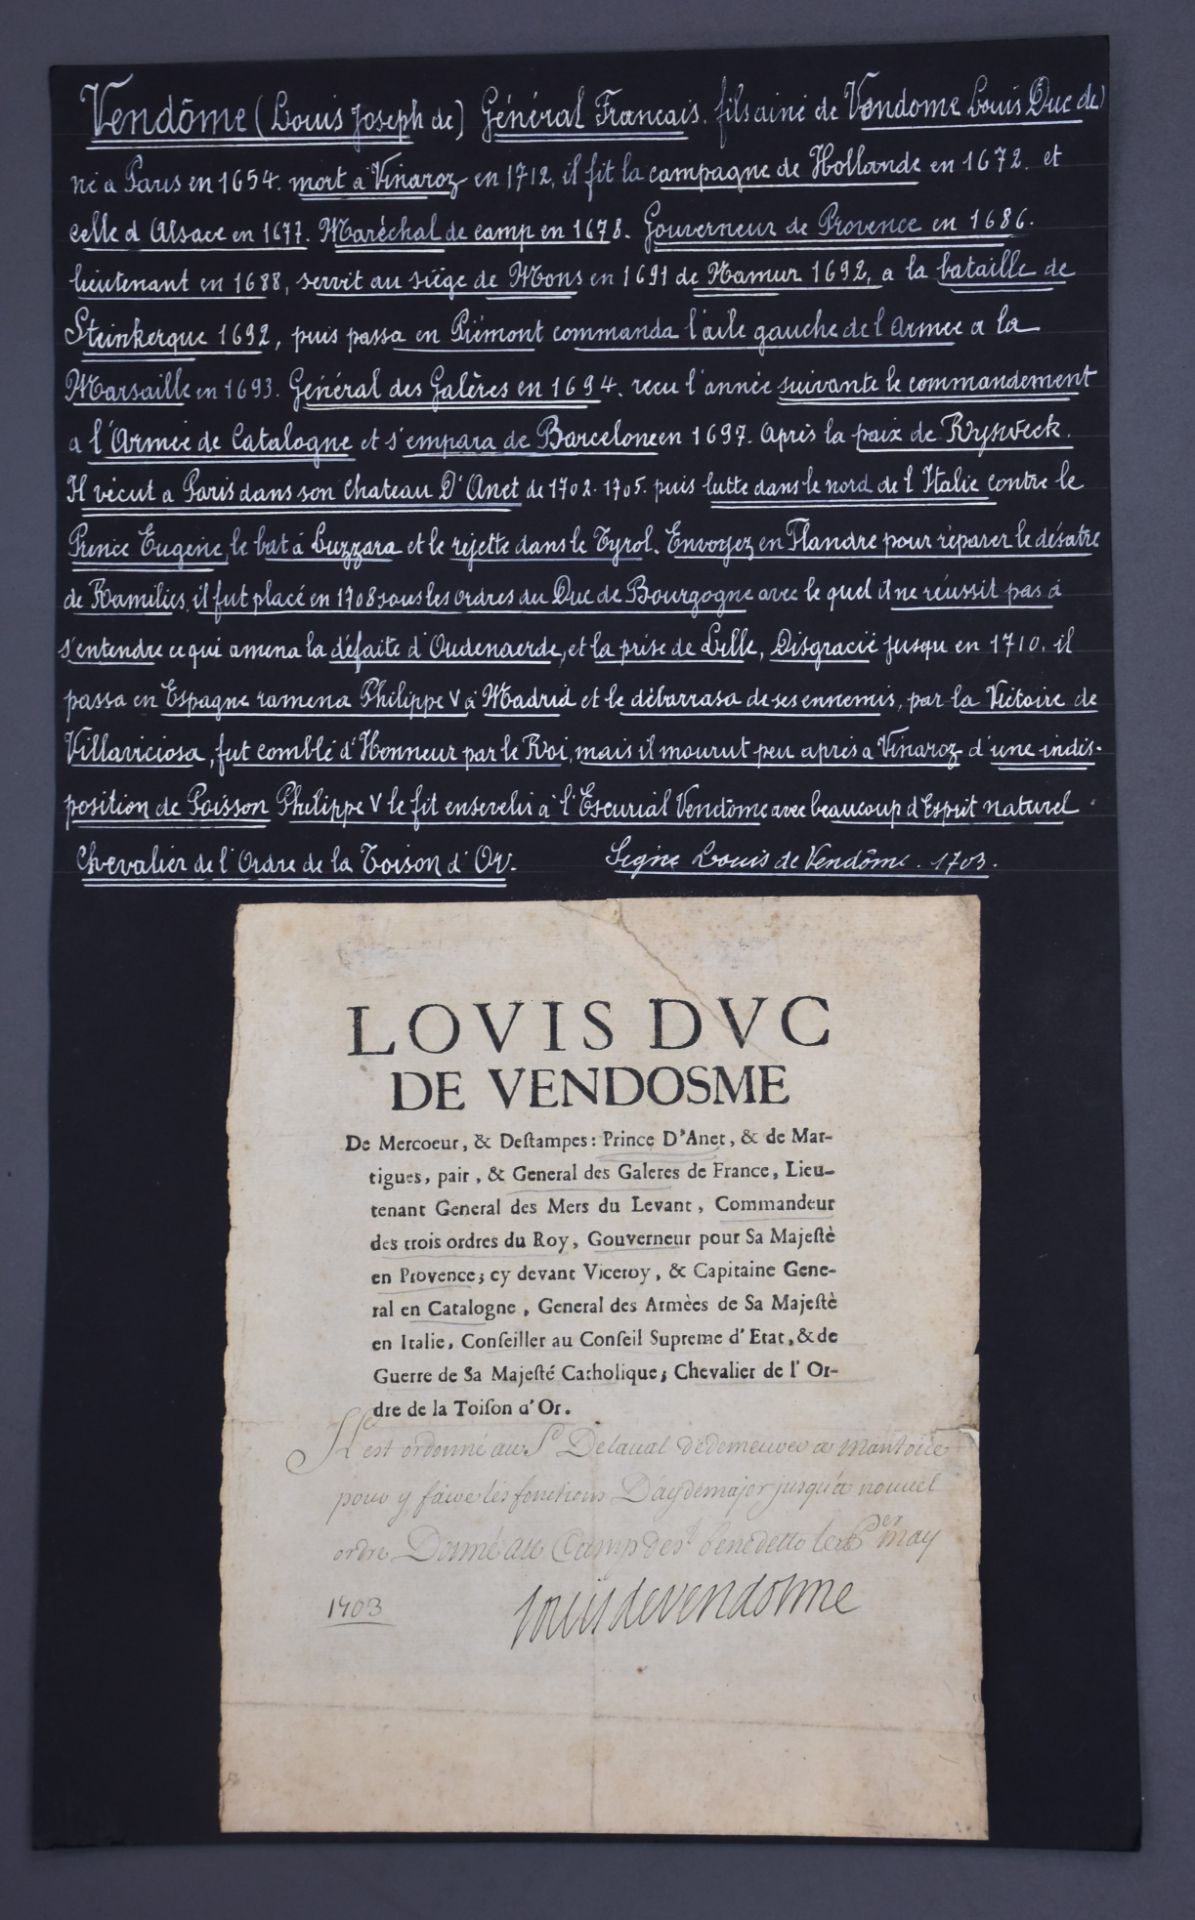 Vendôme (Louis Joseph de) Général Francais. fils ainé de Vendome Louis Duc de)
né a Paris en 1654. mort a Vinaroz en 1712, il fit la campagne de Hollande en 1672. et
celle d Alsace en 1677. Maréchal de camp en 1678. Gouverneur de Provence en 1686.
lieutenant en 1688, servit au siège de Mons en 1691 de Namur 1692, a la bataille de
Steinkerque 1692, puis passa en Piémont commanda l'aile gauche de l Armee a la
Marsaille en 1693. Général des Galères en 1694. recu l'année suivante le commandement
a l'Armée de Catalogne et s'empara de Barcelone en 1697. Après la paix de Rysweck.
Il vécut a Paris dans son chateau D'Anet de 1702. 1705. puis lutte dans le nord de l Italie contre le
Prince Eugène, le bat à Luzzara et le rejette dans le Tyrol. Envoyez en Flandre pour réparer le désatre
de Ramilies, il fut placé en 1708 sous les ordres du Duc de Bourgogne avec le quel il ne réussit pas à
s'entendre ce qui amena la défaite d'Oudenaerde, et la prise de Lille, Disgracié jusqu en 1710. il
passa en Espagne ramena Philippe V à Madrid et le débarrasa de ses ennemis, par la Victoire de
Villaviciosa, fut comblé d'Honneur par le Roi, mais il mourut peu après a Vinaroz d'une indis-
position de Poisson Philippe V le fit ensevelir à l'Escurial Vendôme avec beaucoup d'Esprit naturel.
Chevalier de l'Ordre de la Toison d'Or. Signé Louis de Vendôme. 1703.
LOVIS DVC
DE VENDOSME
De Mercoeur, & Deſtampes: Prince D'Anet, & de Mar-
tigues, pair, & General des Galeres de France, Lieu-
tenant General des Mers du Levant, Commandeur
des trois ordres du Roy, Gouverneur pour Sa Majeſtè
en Provence; cy devant Viceroy, & Capitaine Gene-
ral en Catalogne, General des Armèes de Sa Majeſtè
en Italie, Conſeiller au Conſeil Supreme d'Etat, & de
Guerre de Sa Majeſté Catholique; Chevalier de l'Or-
dre de la Toiſon d'Or.
Il est ordonné au Sr Delaval de demeurer a mantoüe
pour y faire les fonctions D'aydemajor jusqu'a nouvel
ordre Donné au Camp de St benedetto le per may
1703
louis de vendosme